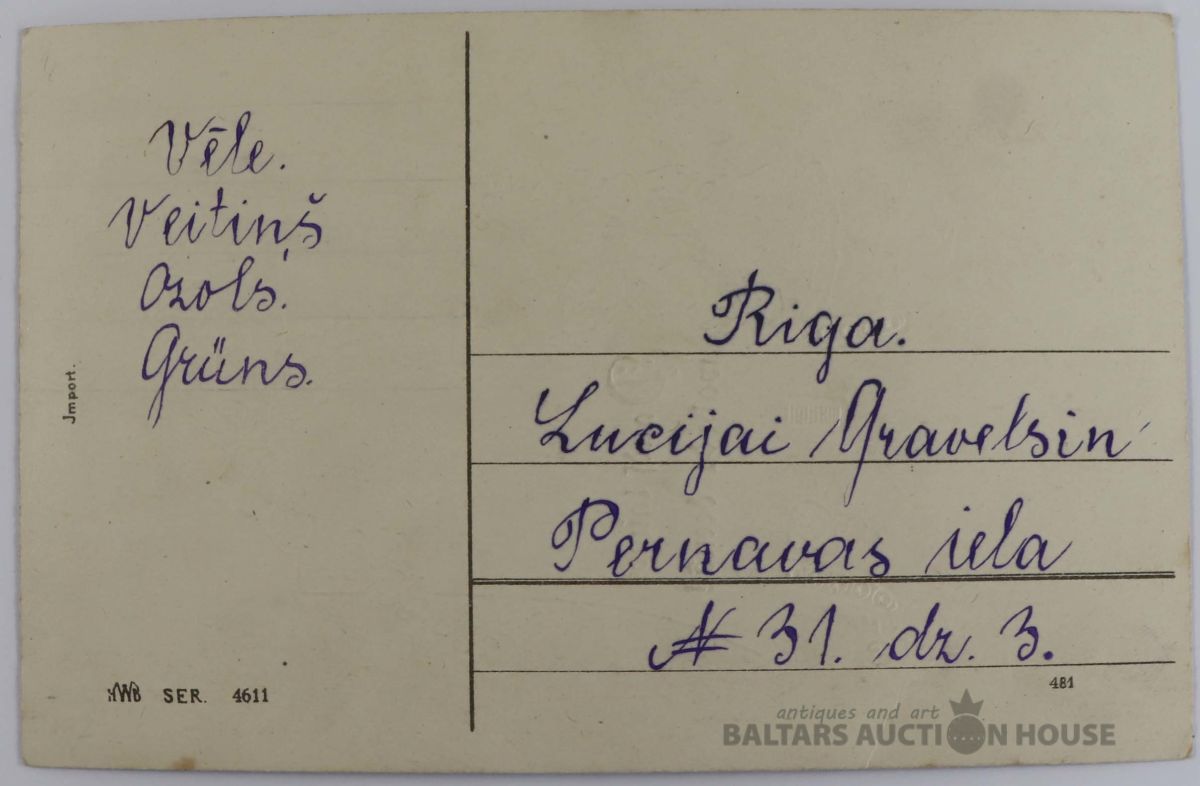 Vēle.
Veitiņš
Ozols.
Grüns.
Jmport.
HWB SER. 4611
Riga.
Lucijai Gravelsin
Pernavas iela
№ 31. dz. 3.
481
antiques and art
BALTARS AUCTION HOUSE